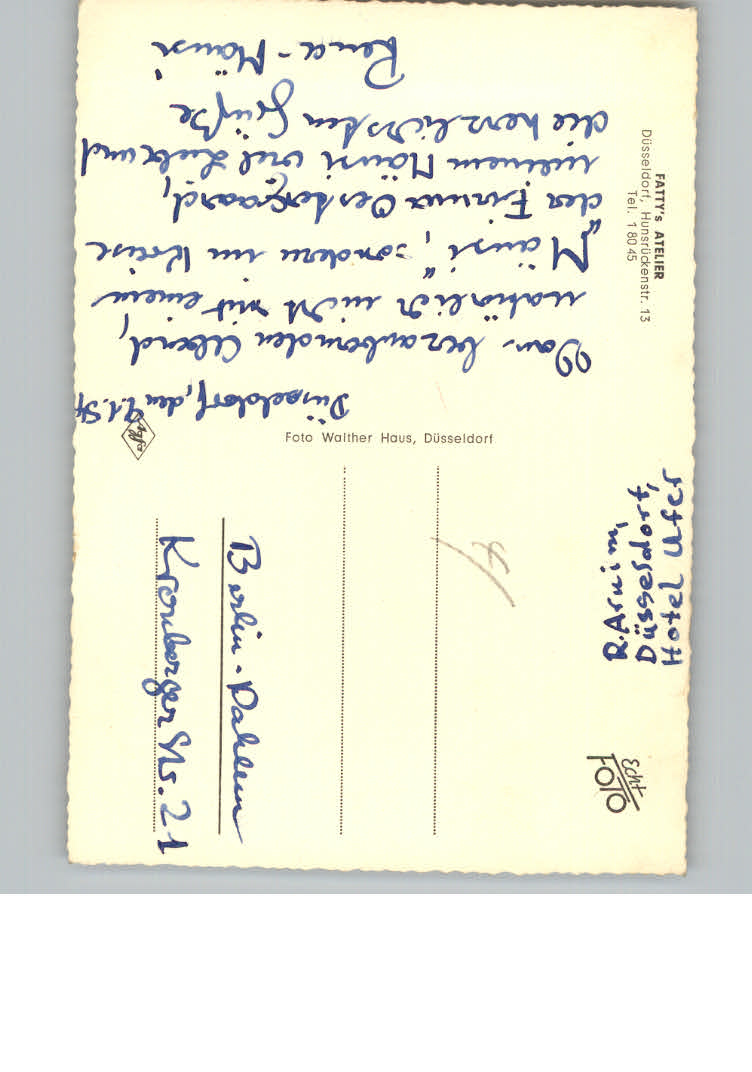 FATTY's ATELIER
Düsseldorf, Hunsrückenstr. 13
Tel. 1 80 45
Düsseldorf, den 9.1.54
Von bezaubernden Abend,
natürlich nicht mit einem
„Mäusi“, sondern im Kreise
der Firma Oestergaard,
meinem Mäusi viel Liebe und
die herzlichsten Grüße
Rena-Mäusi
Foto Walther Haus, Düsseldorf
Agfa
R. Arnim,
Düsseldorf,
Hotel Ufer
Berlin-Dahlem
Kronberger Str. 21
Echt
FOTO